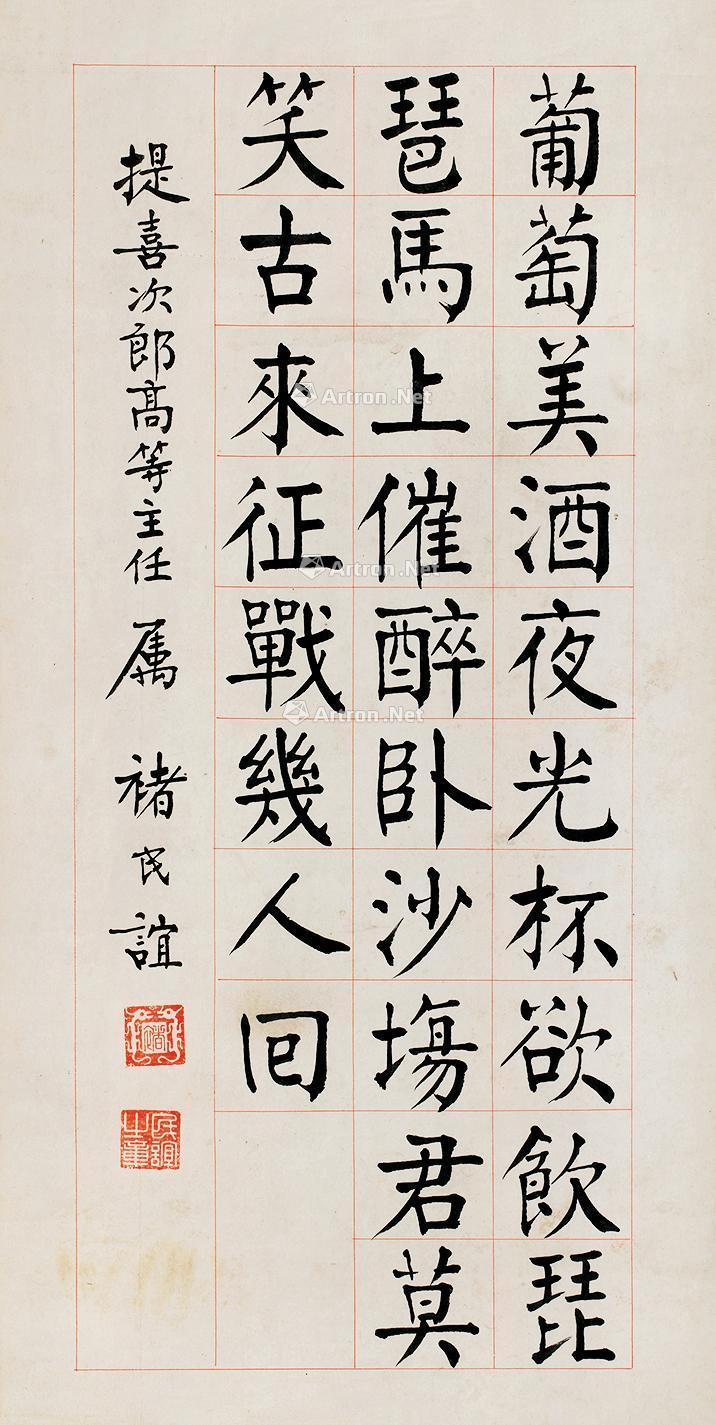 葡萄美酒夜光杯欲飲琵
琶馬上催醉卧沙塲君莫
笑古來征戰幾人回
提喜次郎高等主任 属 褚民誼
褚
民誼之章
Artron.Net
Artron.Net
Artron.Net